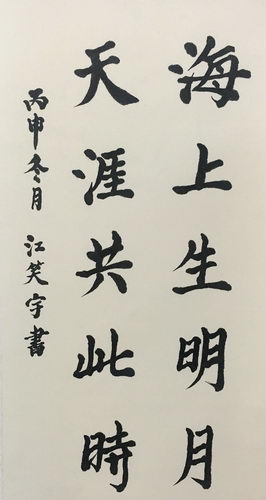 海上生明月
天涯共此時
丙申冬月 江笑宇書